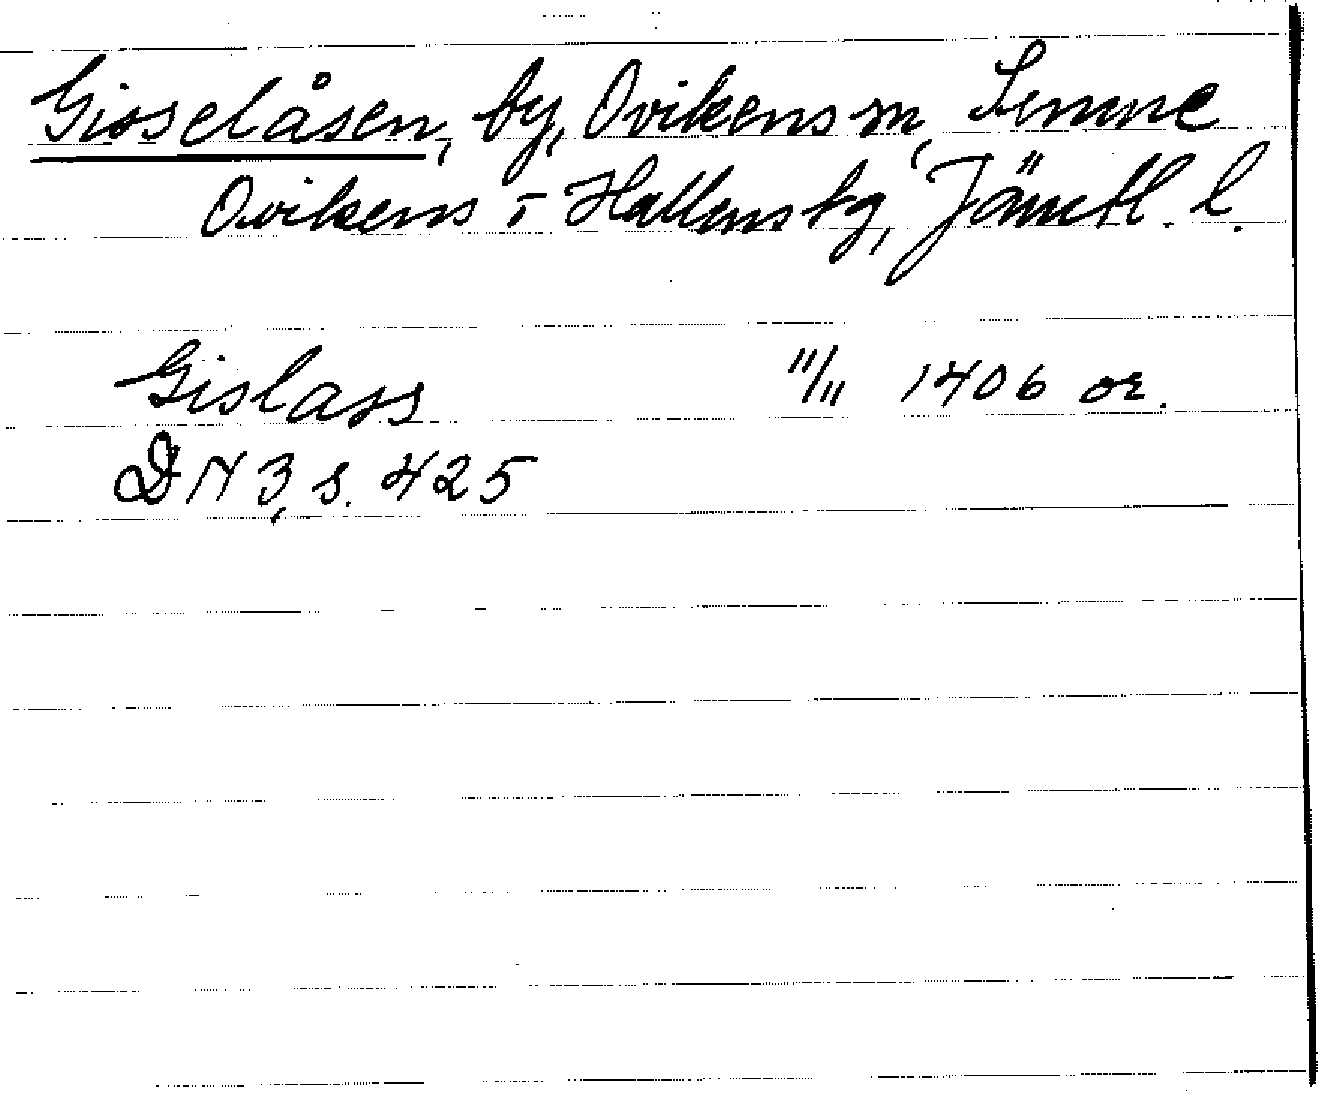 Gisselåsen, by, Ovikens sn, Lemne
Ovikens o Hallens tg, Jämtl. l.
Gislass 11/11 1406 or.
DN 3, s. 425